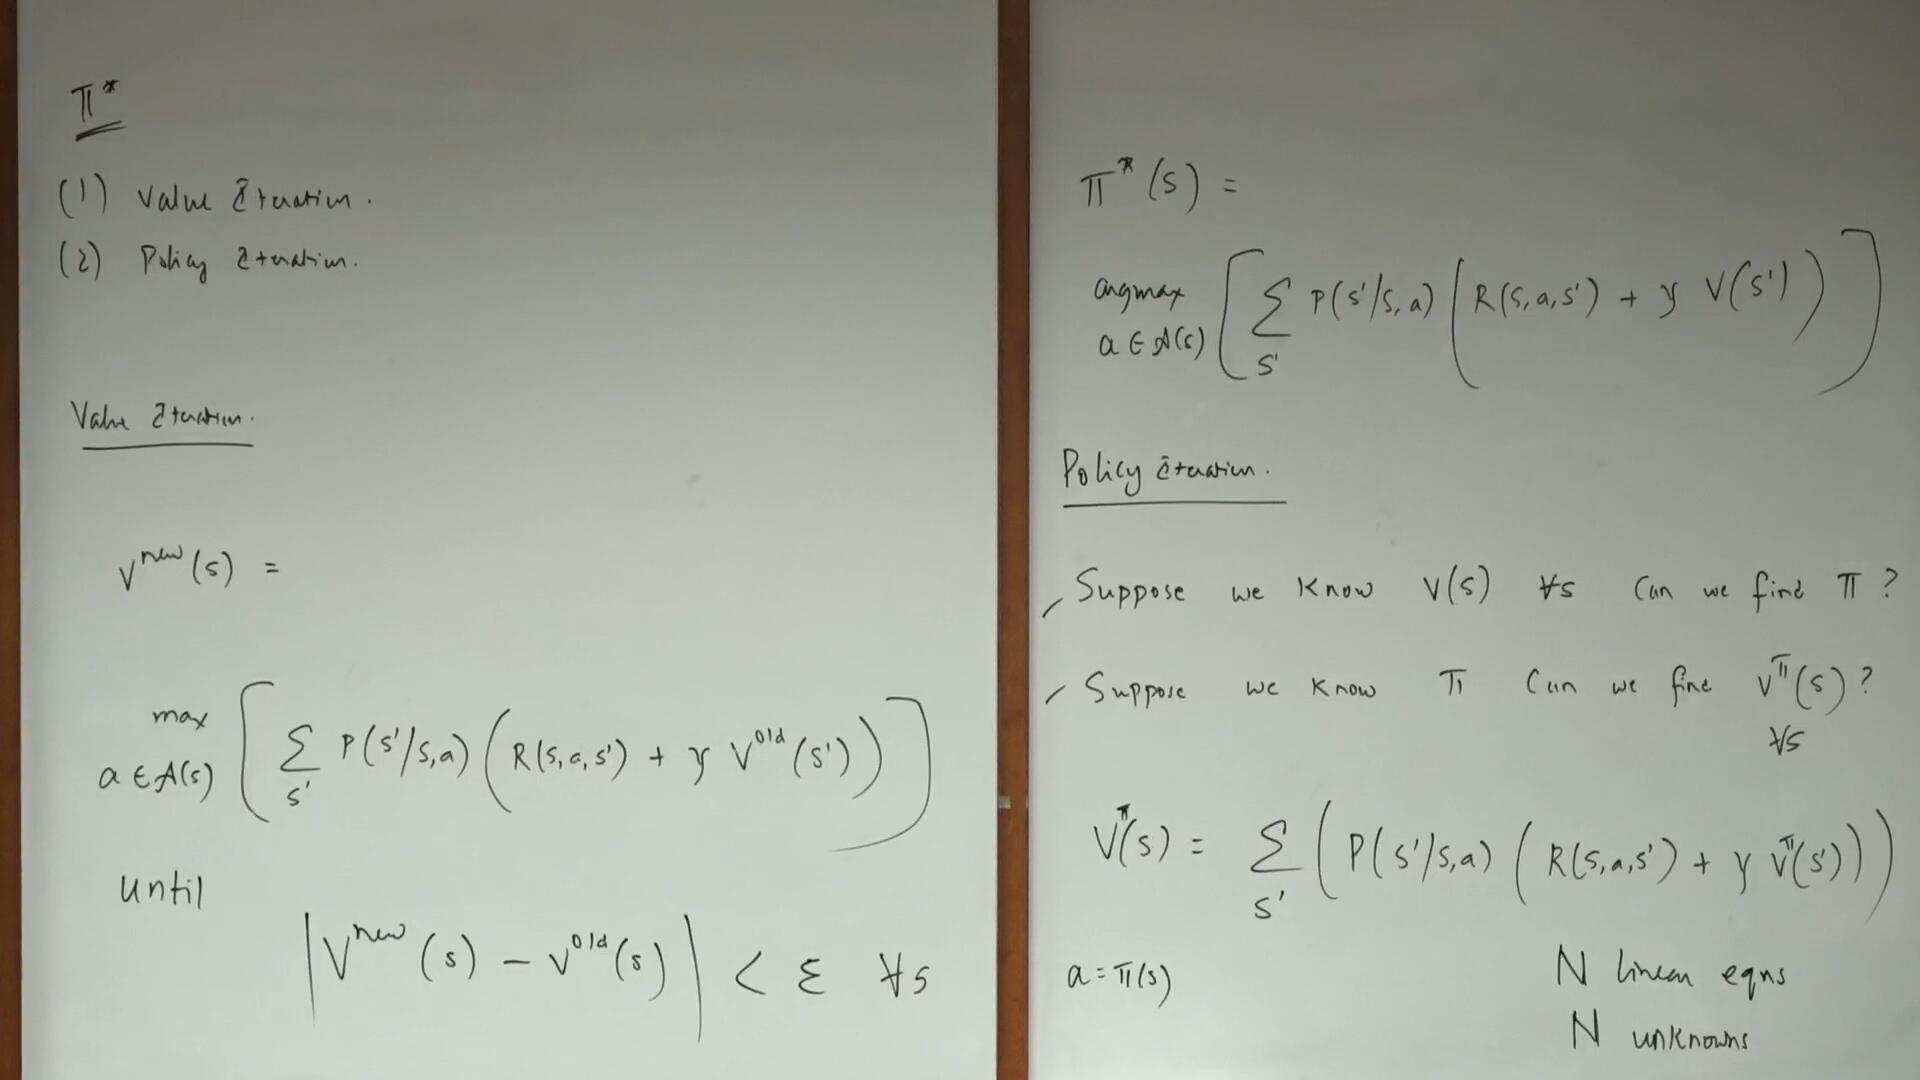 π*
(1) Value Iteration.
(2) Policy Iteration.
Value Iteration.
V^new (s) =
max
a ∈ A(s) [ Σ_s' P(s'/s,a) ( R(s,a,s') + γ V^old (s') ) ]
until
| V^new (s) - V^old (s) | < ε ∀s
π* (s) =
argmax
a ∈ A(s) [ Σ_s' P(s'/s,a) ( R(s,a,s') + γ V(s') ) ]
Policy iteration.
Suppose we know V(s) ∀s Can we find π ?
Suppose we know π Can we find V^π (s) ?
∀s
V^π(s) = Σ_s' ( P(s'/s,a) ( R(s,a,s') + γ V^π(s') ) )
a = π(s)
N linear eqns
N unknowns